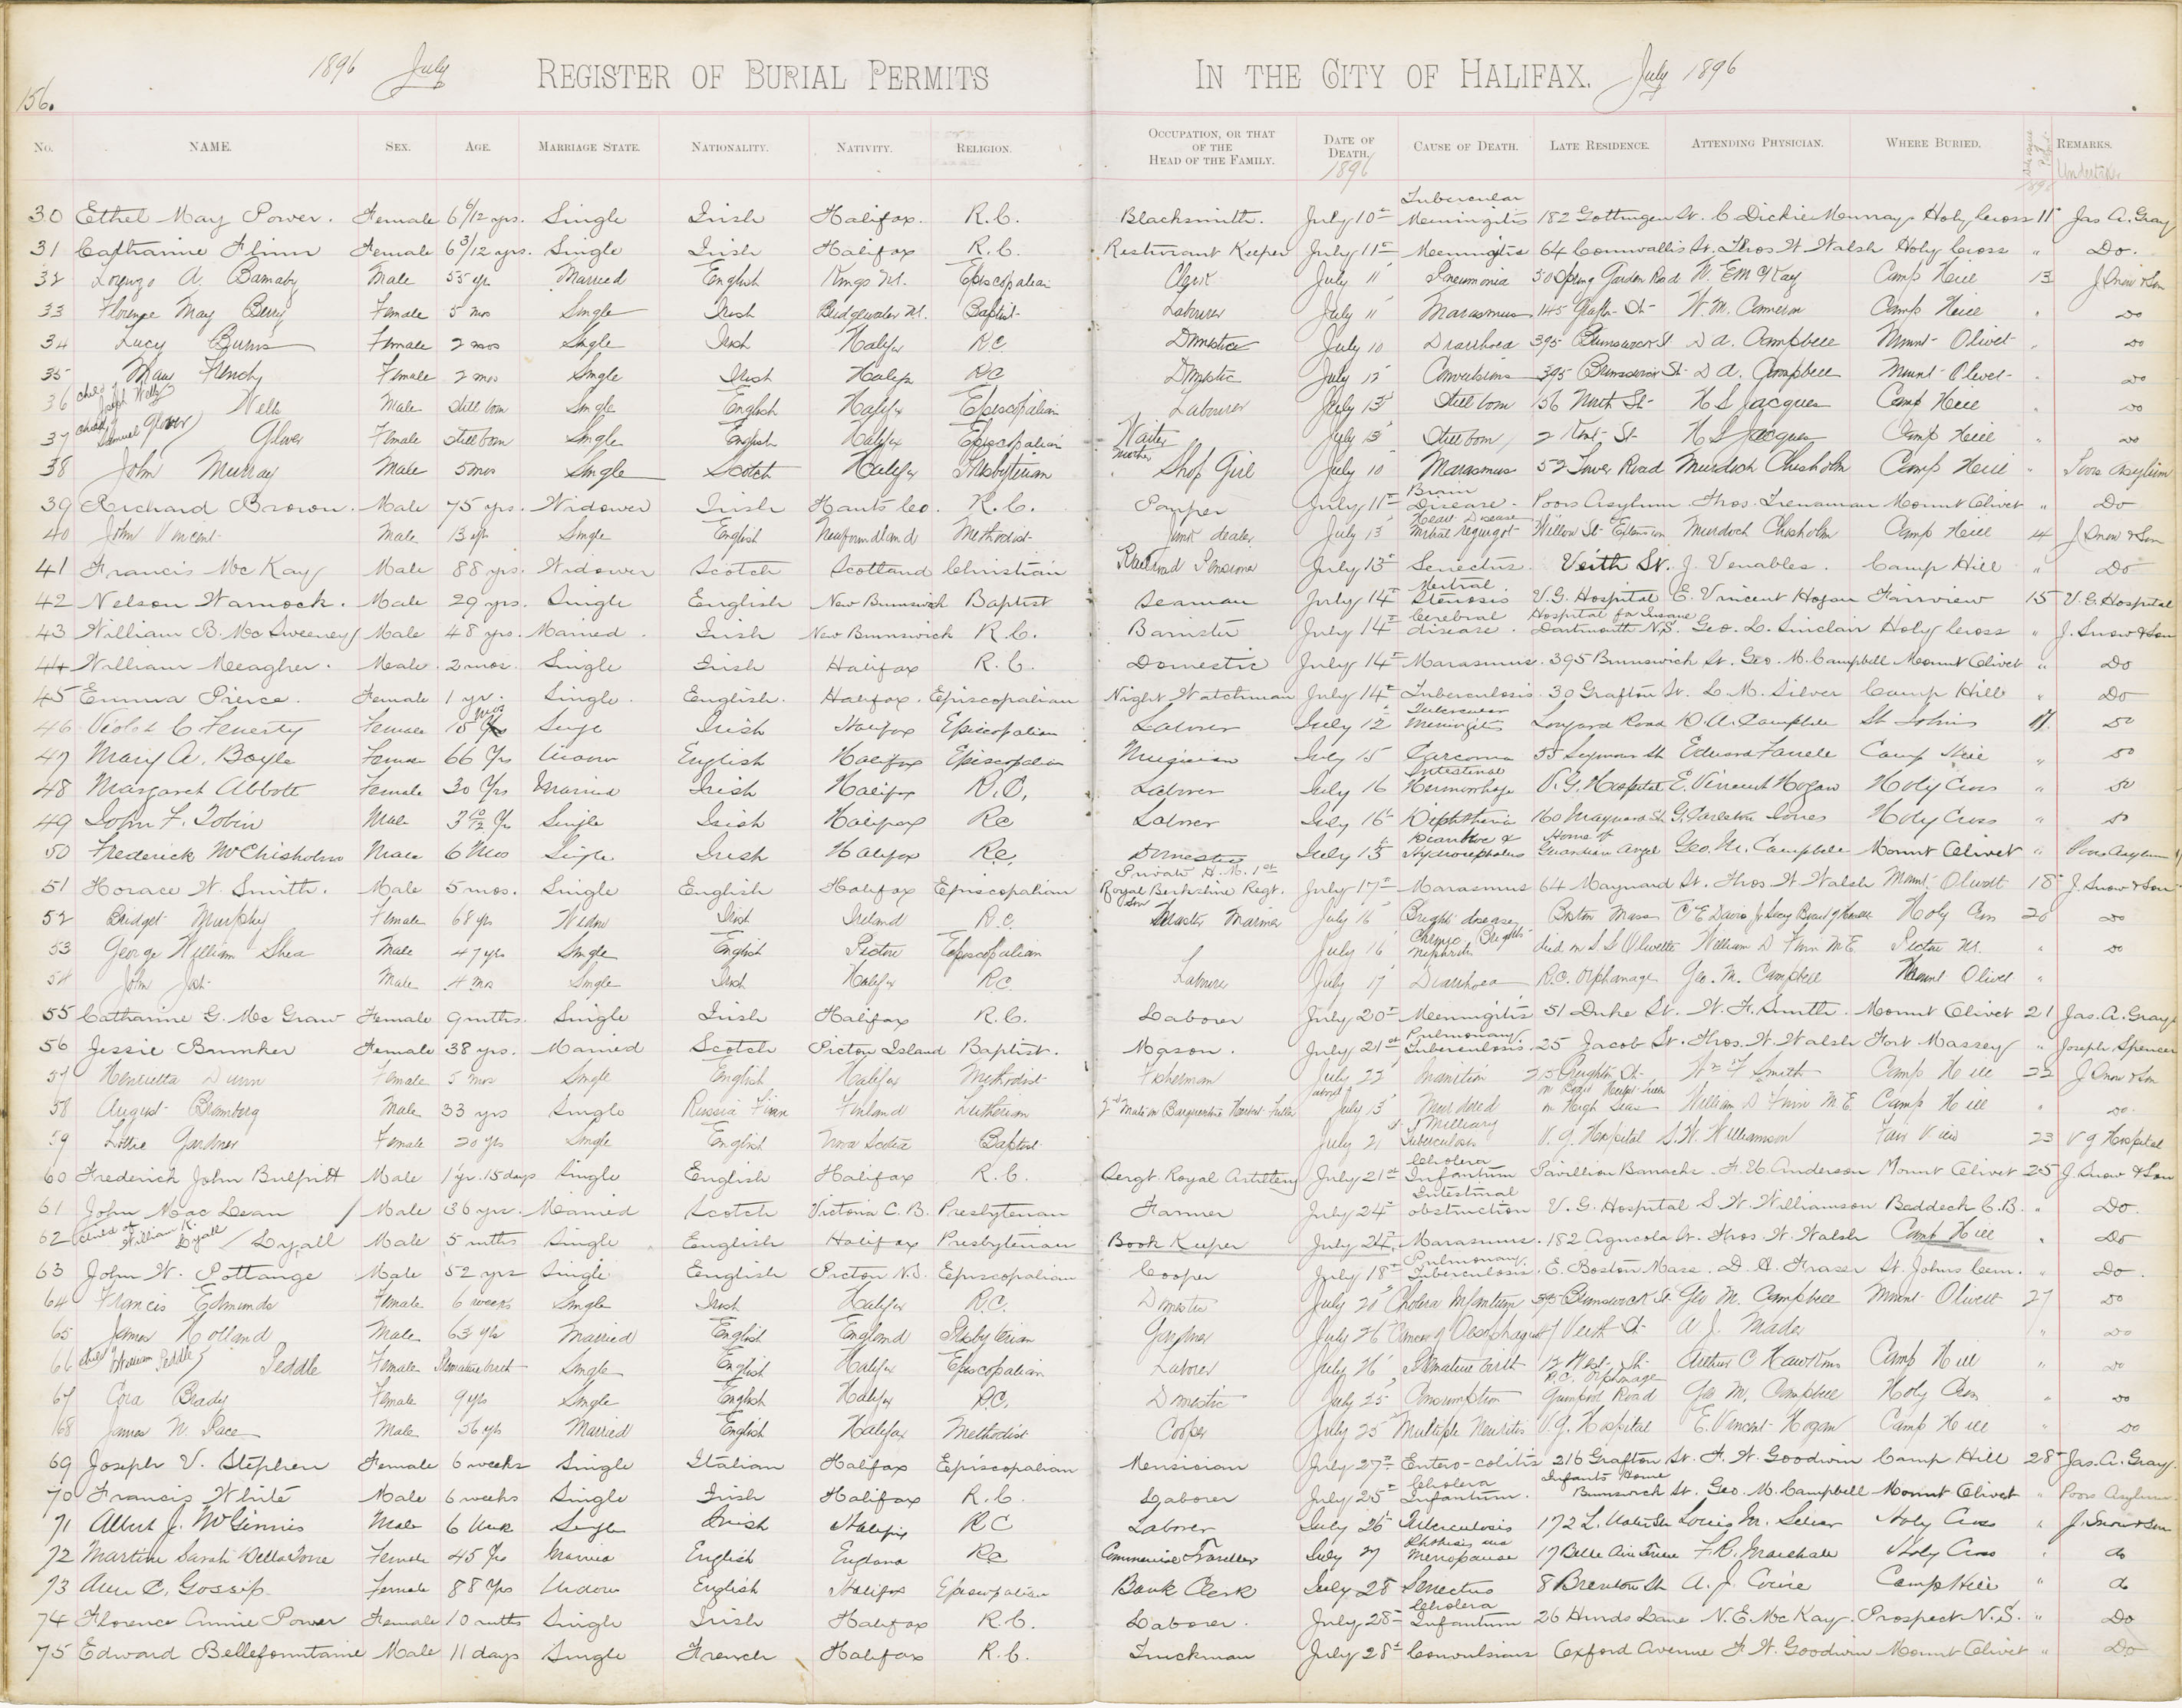 156.
1896 July REGISTER OF BURIAL PERMITS IN THE CITY OF HALIFAX. July 1896
No. NAME. SEX. AGE. MARRIAGE STATE. NATIONALITY. NATIVITY. RELIGION. OCCUPATION, OR THAT OF THE HEAD OF THE FAMILY. DATE OF DEATH. 1896 CAUSE OF DEATH. LATE RESIDENCE. ATTENDING PHYSICIAN. WHERE BURIED. REMARKS. Undertaker
30 Ethel May Power. Female 6 6/12 yrs. Single Irish Halifax. R.C. Blacksmith. July 10th Tubercular Meningitis 182 Gottingen St. C Dickie Murray Holy Cross 11th Jas A. Gray
31 Catharine Flinn Female 6 3/12 yrs. Single Irish Halifax R.C. Resturant Keeper July 11th Meningitis 64 Cornwallis St. Thos W Walsh Holy Cross " Do.
32 Lorenzo A. Barnaby Male 55 yr Married English Kings N.S. Episcopalian Clerk July 11 Pneumonia 50 Spring Garden Road N. E McKay Camp Hill 13 J Snow & Son
33 Florence May Berry Female 5 mos Single Irish Bridgewater N.S. Baptist Labourer July 11 Marasmus 145 Grafton St W. M. Cameron Camp Hill " Do
34 Lucy Burns Female 2 mos Single Irish Halifax R.C. Domestic July 10 Diarrhoea 395 Brunswick St D A. Campbell Mount Olivet " Do
35 Mary Female 2 mos Single Irish Halifax RC Domestic July 12 Convulsions 395 Brunswick St D A. Campbell Mount Olivet " Do
36 child of Joseph Wells Wells Male Still born Single English Halifax Episcopalian Labourer July 13 Still born 156 North St H S Jacques Camp Hill " Do
37 child of Samuel Glover Glover Female Still born Single English Halifax Episcopalian Waiter July 13 Still born 2 Kent St H S Jacques Camp Hill " Do
38 John Murray Male 5 mos Single Scotch Halifax Presbyterian mother Shop Girl July 10 Marasmus 52 Tower Road Murdoch Chisholm Camp Hill " Poors Asylum
39 Richard Brown. Male 75 yrs. Widower Irish Hants Co. R.C. Pauper July 11th Brain Disease. Poors Asylum Thos. Trenaman Mount Olivet " Do
40 John Vincent Male 13 yrs Single English Newfoundland Methodist Junk dealer July 13 Heart Disease Mitral Regurgt Willow St Extension Murdoch Chisholm Camp Hill 14 J Snow & Son
41 Francis McKay Male 88 yrs. Widower Scotch Scotland Christian Railroad Pensioner July 13th Senectus Veith St. J. Venables. Camp Hill " Do
42 Nelson Warnock. Male 29 yrs. Single English New Brunswick Baptist Seaman July 14th Mitral Stenosis V.G. Hospital E. Vincent Hogan Fairview 15 V.G. Hospital
43 William B. McSweeney Male 48 yrs. Married. Irish New Brunswick R.C. Barrister July 14th Cerebral disease. Hospital for Insane Dartmouth N.S. Geo. L. Sinclair Holy Cross " J. Snow & Son
44 William Meagher. Male 2 mos Single Irish Halifax R.C. Domestic July 14th Marasmus. 395 Brunswick St. Geo. M. Campbell Mount Olivet " Do
45 Emma Pierce. Female 1 yr. Single. English. Halifax. Episcopalian Night Watchman July 14th Tuberculosis. 30 Grafton St. L. M. Silver Camp Hill " Do
46 Violet C Fenerty Female 15 mos Single Irish Halifax Episcopalian Laborer July 12 Tubercular Meningitis Longard Road D. A. Campbell St Johns 17 Do
47 Mary A. Boyle Female 66 Yrs Widow English Halifax Episcopalian Musician July 15 Sarcoma 55 Seymour St Edward Farrell Camp Hill " Do
48 Margaret Abbott Female 30 Yrs Married Irish Halifax R.C. Laborer July 16 Intestinal Hemorrhage V.G. Hospital E. Vincent Hogan Holy Cross " Do
49 John F. Tobin Male 3 Yrs Single Irish Halifax RC Laborer July 16th Diphtheria 160 Maynard St G. Carleton Jones Holy Cross " Do
50 Frederick McChisholm Male 6 Mos Single Irish Halifax RC. Domestic July 15th Diarrhoea & Hydrocephalus Home of Guardian Angel Geo. M. Campbell Mount Olivet " Poors Asylum
51 Horace W. Smith. Male 5 mos. Single English Halifax Episcopalian Private H.M. 1st Royal Berkshire Regt. July 17th Marasmus 64 Maynard St. Thos W Walsh Mount Olivet 18th J. Snow & Son
52 Bridget Murphy Female 68 yrs Widow Irish Ireland R.C. Son Master Mariner July 16 Brights disease Boston Mass C E Davis Jr Secy Board of Health Holy Cross 20 Do
53 George William Shea Male 47 yrs Single English Pictou Episcopalian July 16 Chronic Brights Nephritis died on S S Olivette William D Finn M E. Pictou N.S. " Do
54 John Male 4 mos Single Irish Halifax RC. Labourer July 17 Diarrhoea R.C. Orphanage Geo. M. Campbell Mount Olivet "
55 Catharine G. McGraw Female 9 mths. Single Irish Halifax R.C. Laborer July 20th Meningitis 51 Duke St. W. F. Smith. Mount Olivet 21 Jas. A. Gray
56 Jessie Brunker Female 38 yrs. Married Scotch Pictou Island Baptist. Mason. July 21st Pulmonary Tuberculosis 25 Jacob St. Thos. W. Walsh Fort Massey " Joseph Spencer
57 Henrietta Dunn Female 5 mos Single English Halifax Methodist Fisherman July 22 Inanition 25 Creighton St Wm F Smith Camp Hill 22 J Snow & Son
58 August Bramberg Male 33 yrs Single Russia Finn Finland Lutheran 2nd Mate on Barquentine Herbert Fuller about July 13 Murdered on board Herbert Fuller on High Seas William D Finn M E. Camp Hill " Do.
59 Lottie Gardner Female 20 yrs Single English Nova Scotia Baptist July 21 Milliary Tuberculosis V.G. Hospital S. W. Williamson Fair View 23 V G Hospital
60 Frederick John Bulpitt Male 1 yr. 15 days Single English Halifax R.C. Sergt Royal Artillery July 21st Cholera Infantum Pavillion Barracks F. U. Anderson Mount Olivet 25 J. Snow & Son
61 John MacLean Male 36 yrs. Married Scotch Victoria C.B. Presbyterian Farmer July 24th Intestinal obstruction V.G. Hospital S. W. Williamson Baddeck C.B. " Do.
62 child of William R. Lyall Lyall Male 5 mths Single English Halifax Presbyterian Book Keeper July 24th Marasmus. 182 Agricola St. Thos W. Walsh Camp Hill " Do
63 John W. Pottange Male 52 yrs Single English Pictou N.S. Episcopalian Cooper July 18th Pulmonary Tuberculosis. E. Boston Mass. D. A. Fraser St. Johns Cem. " Do.
64 Francis Edmunds Female 6 weeks Single Irish Halifax R.C. Domestic July 26 Cholera Infantum 395 Brunswick St Geo M. Campbell Mount Olivet 27 Do
65 James Holland Male 63 yrs Married English England Presbyterian Gardner July 26 Cancer of Oesophagus 7 Veith St A J. Mader " Do
66 child of William Peddle Peddle Female Premature birth Single English Halifax Episcopalian Laborer July 26 Premature birth 12 West St Arthur C Hawkins Camp Hill " Do
67 Cora Brady Female 9 yrs Single English Halifax R.C. Domestic July 25 Consumption R.C. Orphanage Quinpool Road Geo M. Campbell Holy Cross " Do
68 James N. Pace Male 56 yrs Married English Halifax Methodist Cooper July 25 Multiple Neuritis V.G. Hospital E. Vincent Hogan Camp Hill " Do
69 Joseph V. Stephen Female 6 weeks Single Italian Halifax Episcopalian Musician July 27th Entero-colitis 216 Grafton St. F. W. Goodwin Camp Hill 28th Jas. A. Gray.
70 Francis White Male 6 weeks Single Irish Halifax R.C. Laborer July 25th Cholera Infantum. Infants Home Brunswick St. Geo. M. Campbell Mount Olivet " Poors Asylum
71 Albert J. McGinnis Male 6 Single Irish Halifax RC Laborer July 26th Tuberculosis 172 L. Water St Louis M. Silver Holy Cross " J. Snow & Son
72 Martine Sarah DellaTorre Female 45 Yrs Married English England RC Commercial Traveller July 27 Phthisis and Menopause 17 Belle Aire Terrace Holy Cross " do
73 Ann C. Gossip Female 88 Yrs Widow English Halifax Episcopalian Bank Clerk July 28 Senectus 8 Brenton St A. J. Cowie Camp Hill " do
74 Florence Annie Power Female 10 mths Single Irish Halifax R.C. Laborer. July 28th Cholera Infantum 26 Hurds Lane N. E. McKay. Prospect N.S. " Do
75 Edward Bellefountaine Male 11 days Single French Halifax R.C. Truckman July 28th Convulsions Oxford Avenue F. W. Goodwin Mount Olivet " Do